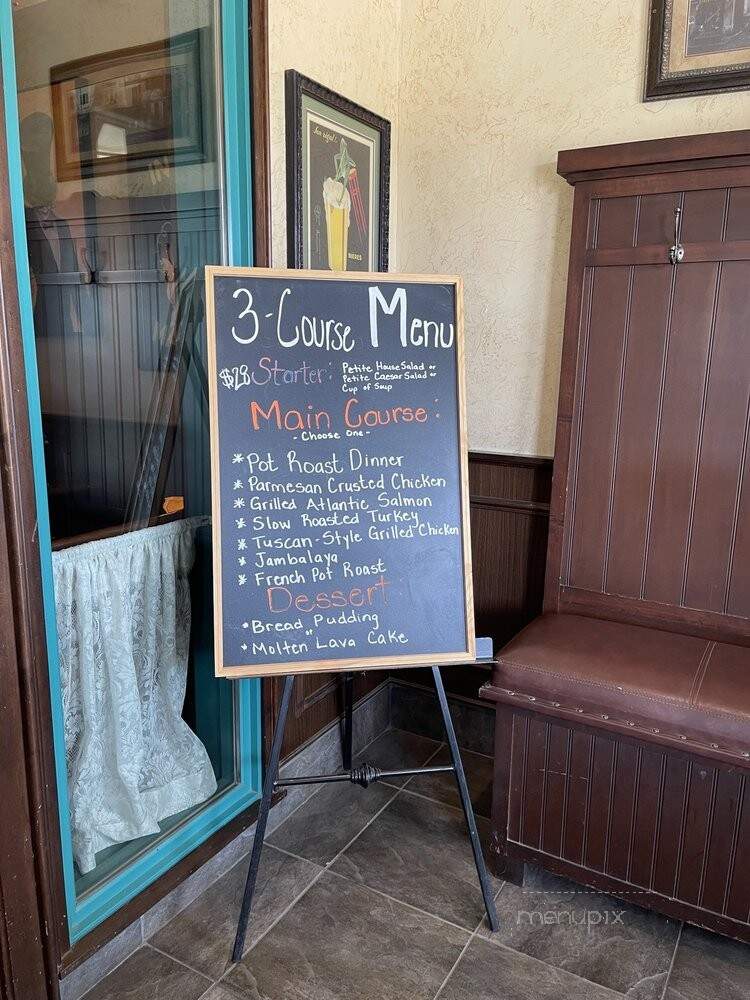 3-Course Menu
$28 Starter: Petite House Salad or
Petite Caesar Salad or
Cup of Soup
Main Course:
- Choose One -
* Pot Roast Dinner
* Parmesan Crusted Chicken
* Grilled Atlantic Salmon
* Slow Roasted Turkey
* Tuscan-Style Grilled Chicken
* Jambalaya
* French Pot Roast
Dessert
* Bread Pudding
or
* Molten Lava Cake
BIERES
menupix